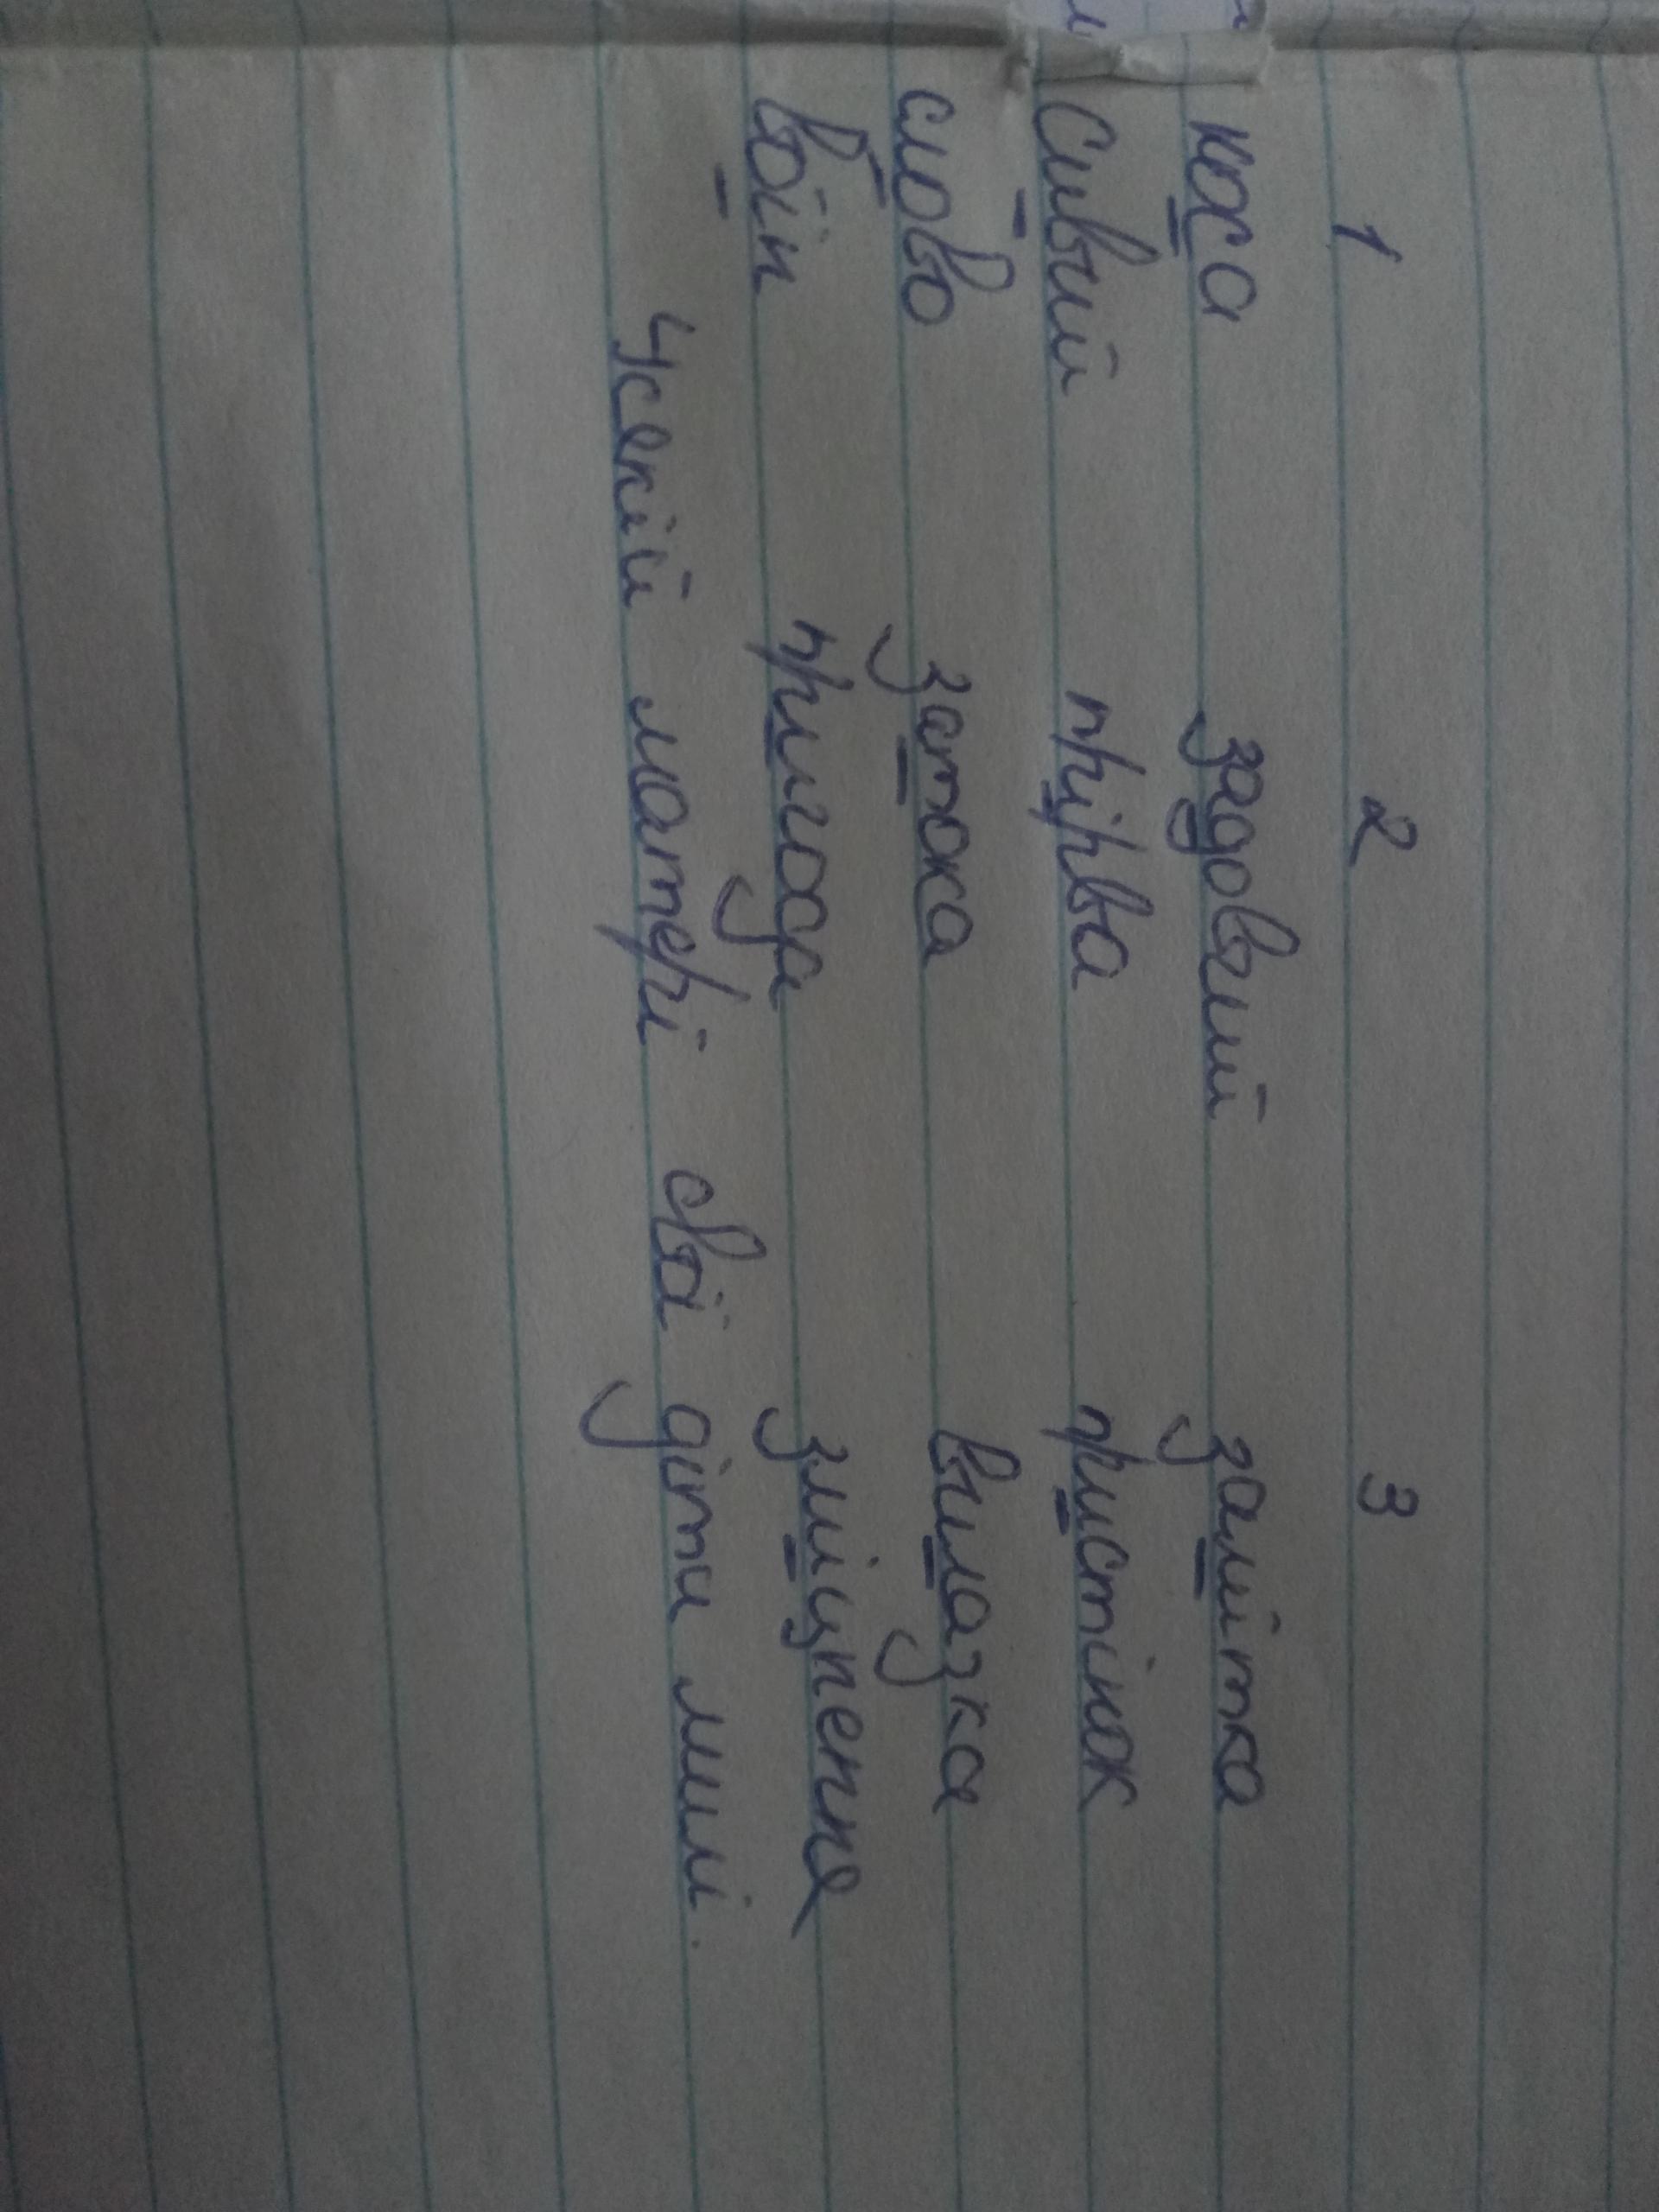 1 2 3
коса задовгий замітка
Сивий прірва пристінок
слово затока вилазка
воїн пригода зміцнення
Усякій матері свої діти милі.